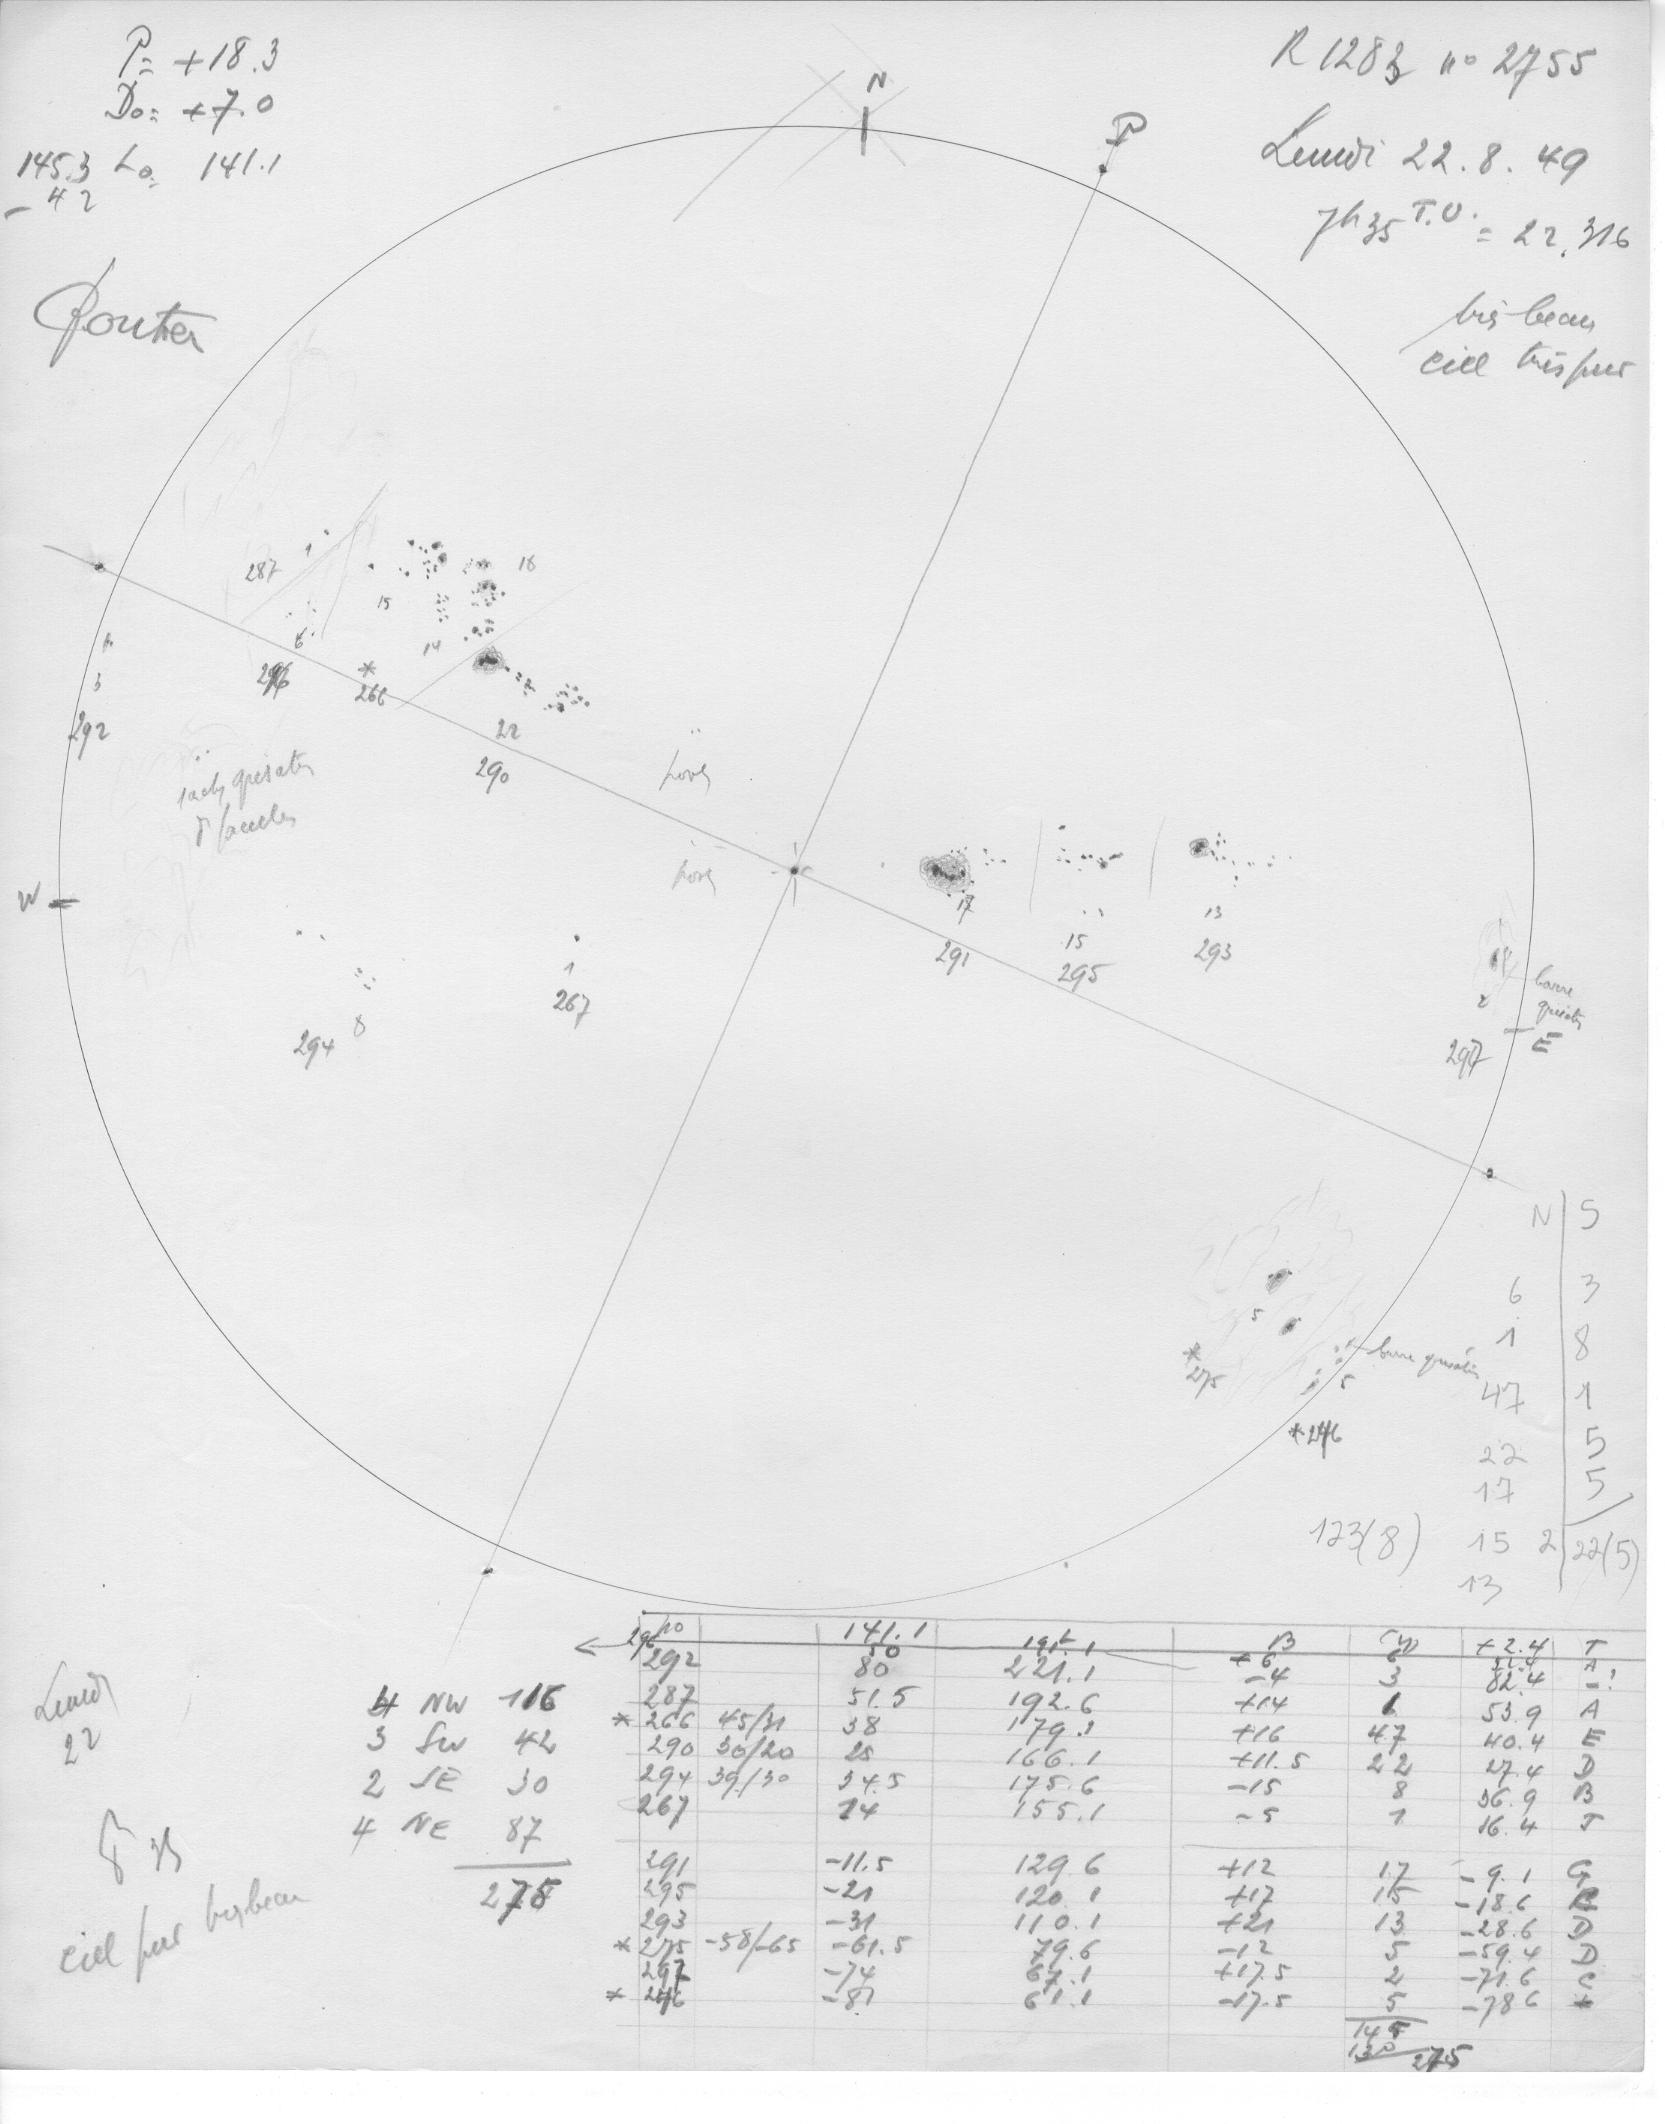 P = +18.3
Do = +7.0
145.3 Lo = 141.1
- 4 2
N
P
R 1283 no 2755
Lundi 22.8.49
7h35 T.U. = 22,316
très beau
ciel très pur
287
1
16
15
14
6
296
*
266
22
290
3
292
W
294
8
1
267
17
291
15
295
13
293
2
297
E
5
*
275
5
*246
N 5
6 3
1 8
47 1
22 5
17 5
123(8) 15 2 22(5)
13
Lundi
22
4 NW 116
3 SW 42
2 SE 30
4 NE 87
275
ciel pur très beau
no 141.1 L B
296 50 191.1 +6 6 T
292 80 221.1 -4 3 82.4
287 51.5 192.6 +14 1 53.9 A
* 266 45/31 38 179.1 +16 47 40.4 E
290 30/20 25 166.1 +11.5 22 27.4 D
294 39/30 34.5 175.6 -15 8 36.9 B
267 14 155.1 -5 1 16.4 T
291 -11.5 129.6 +12 17 -9.1 G
295 -21 120.1 +17 15 -18.6
293 -31 110.1 +21 13 -28.6 D
* 275 -58/-65 -61.5 79.6 -12 5 -59.4 D
297 -74 67.1 +17.5 2 -71.6 C
* 246 -81 61.1 -17.5 5 -78.6
145
130 275